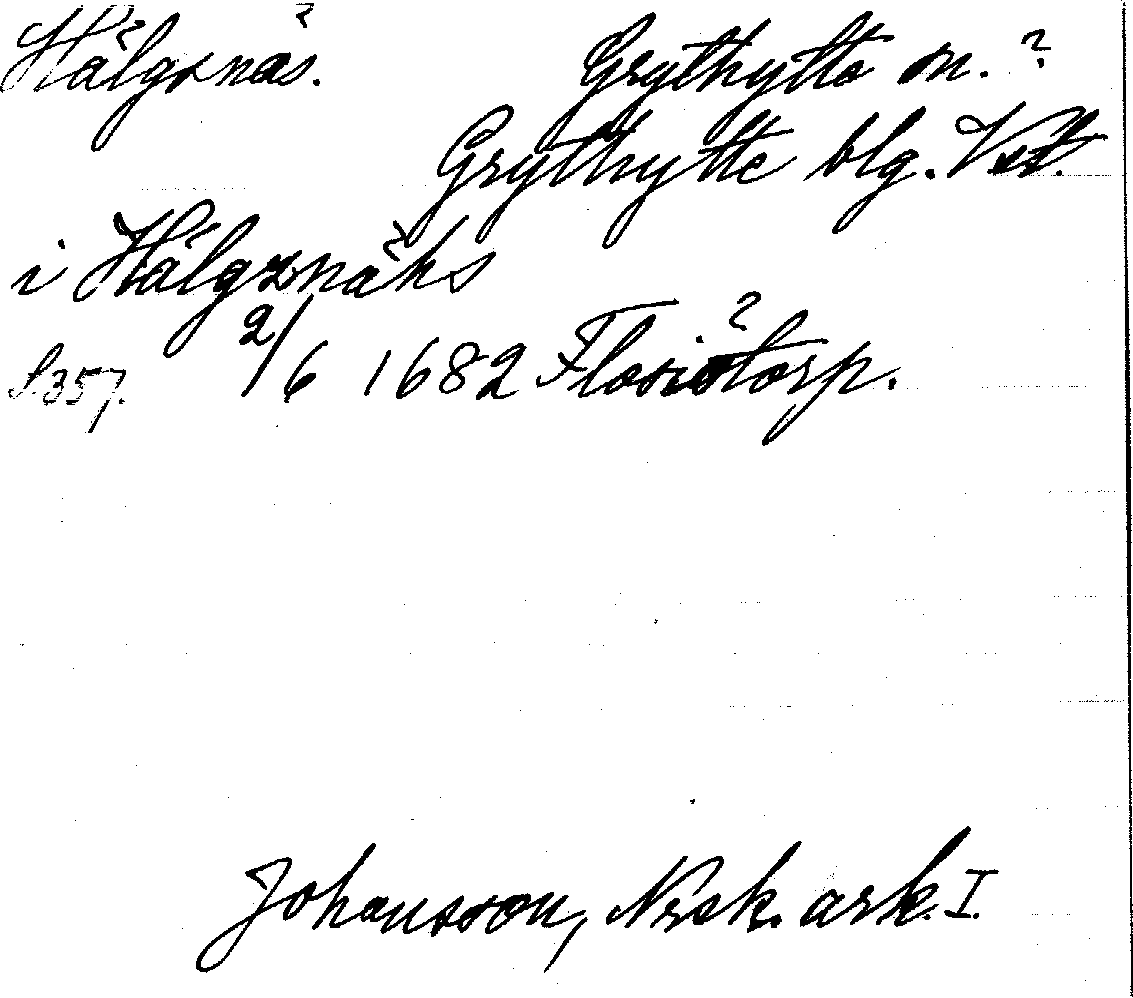 Hälgsnäs. Grythytte sn. ?
Grythytte blg. Vstl.
i Hälgsnähs
S. 357. 2/6 1682 Flosiötorp.
Johansson, Norsk. ark. I.